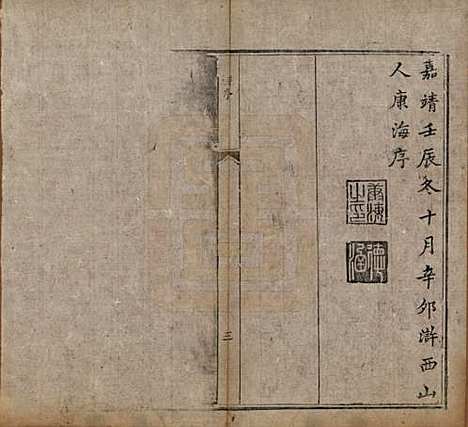 嘉靖壬辰冬十月辛卯滸西山
人康海序
序
三